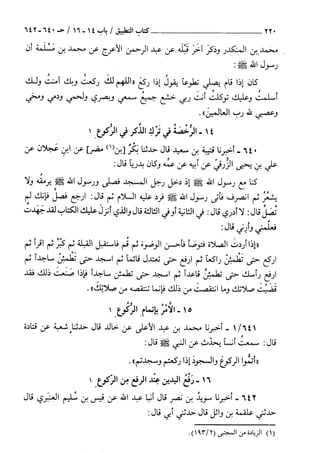 ٢٢٠ كتاب التطبيق / باب ١٤ - ١٦ / حـ ٦٤٠ - ٦٤٢
محمد بن المنكدر وذكر آخر قبله عن عبد الرحمن الأعرج عن محمد بن مَسْلَمة أن
رسول الله ﷺ:
كان إذا قام يصلي تطوعاً يقول إذا ركع «اللهم لك ركعتُ وبك آمنتُ ولك
أسلمتُ وعليك توكلتُ أنت ربي خشع جميعُ سمعي وبصري ولحمي ودمي ومخي
وعصبي لله رب العالمين».
١٤ - الرُّخْصَةُ في تَرْكِ الذِّكر في الركوع ١
٦٤٠ - أخبرنا قتيبة بن سعيد قال حدثنا بَكْرُ [بن(١) مضر] عن ابن عجلان عن
علي بن يحيى الزُّرَقيِّ عن أبيه عن عمِّه وكان بدرياً قال:
كنا مع رسول الله ﷺ إذ دخل رجل المسجد فصلى ورسول الله ﷺ يرمقه ولا
يشعُرُ ثم انصرف فأتى رسول الله ﷺ فسلم عليه فرد عليه السلام ثم قال: ارجع فصلِّ فإنك لم
تُصَلِّ قال: لا أدري قال: في الثانية أو في الثالثة قال والذي أنزل عليك الكتاب لقد جَهَدتُ
فعلِّمني وأرِني قال:
«إذا أردت الصلاة فتوضأ فأحسن الوضوء ثم قُم فاستقبل القبلة ثم كبِّر ثم اقرأ ثم
اركع حتى تَطْمئِنَّ راكعاً ثم ارفع حتى تعتدل قائماً ثم اسجد حتى تَطْمئِنَّ ساجداً ثم
ارفع رأسك حتى تطمئنَّ قاعداً ثم اسجد حتى تطمئن ساجداً فإذا صَنَعت ذلك فقد
قضَيتَ صلاتك وما انتقصت من ذلك فإنما تنتقصه من صلاتك».
١٥ - الأمْرُ بإتمام الرُّكوع ١
١/٦٤١ - أخبرنا محمد بن عبد الأعلى عن خالد قال حدثنا شعبة عن قتادة
قال: سمعت أنساً يحدِّث عن النبي ﷺ قال:
«أتموا الركوعَ والسجودَ إذا ركعتم وسجدتم».
١٦ - رَفْعُ اليدين عِنْد الرفعِ من الرُّكوع ١
٦٤٢ - أخبرنا سويدُ بن نصر قال أنبأ عبد الله عن قيس بن سُليم العنبري قال
حدثني علقمة بن وائل قال حدثني أبي قال:
(١) الزيادة من المجتبى (١٩٣/٢).